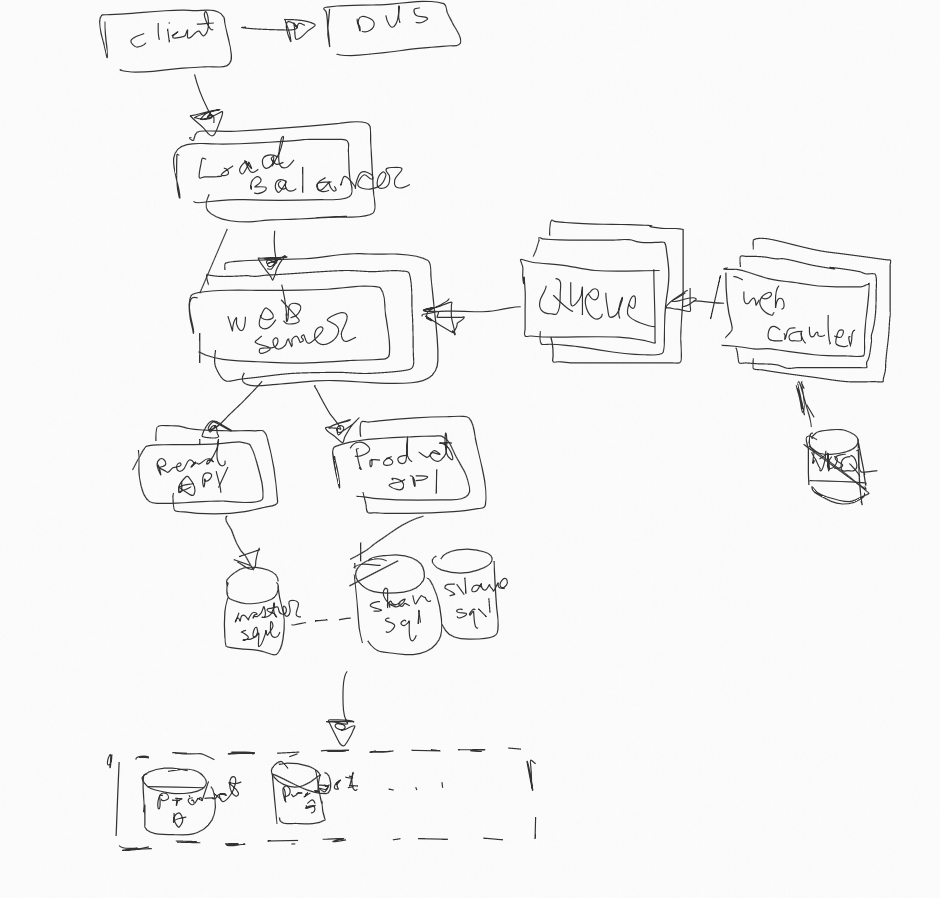 client
DUS
Load
Balancer
WEB
server
QUEUE
web
crawler
Read
API
Product
API
master
sql
slave
sql
slave
sql
Product
A
Product
. . .